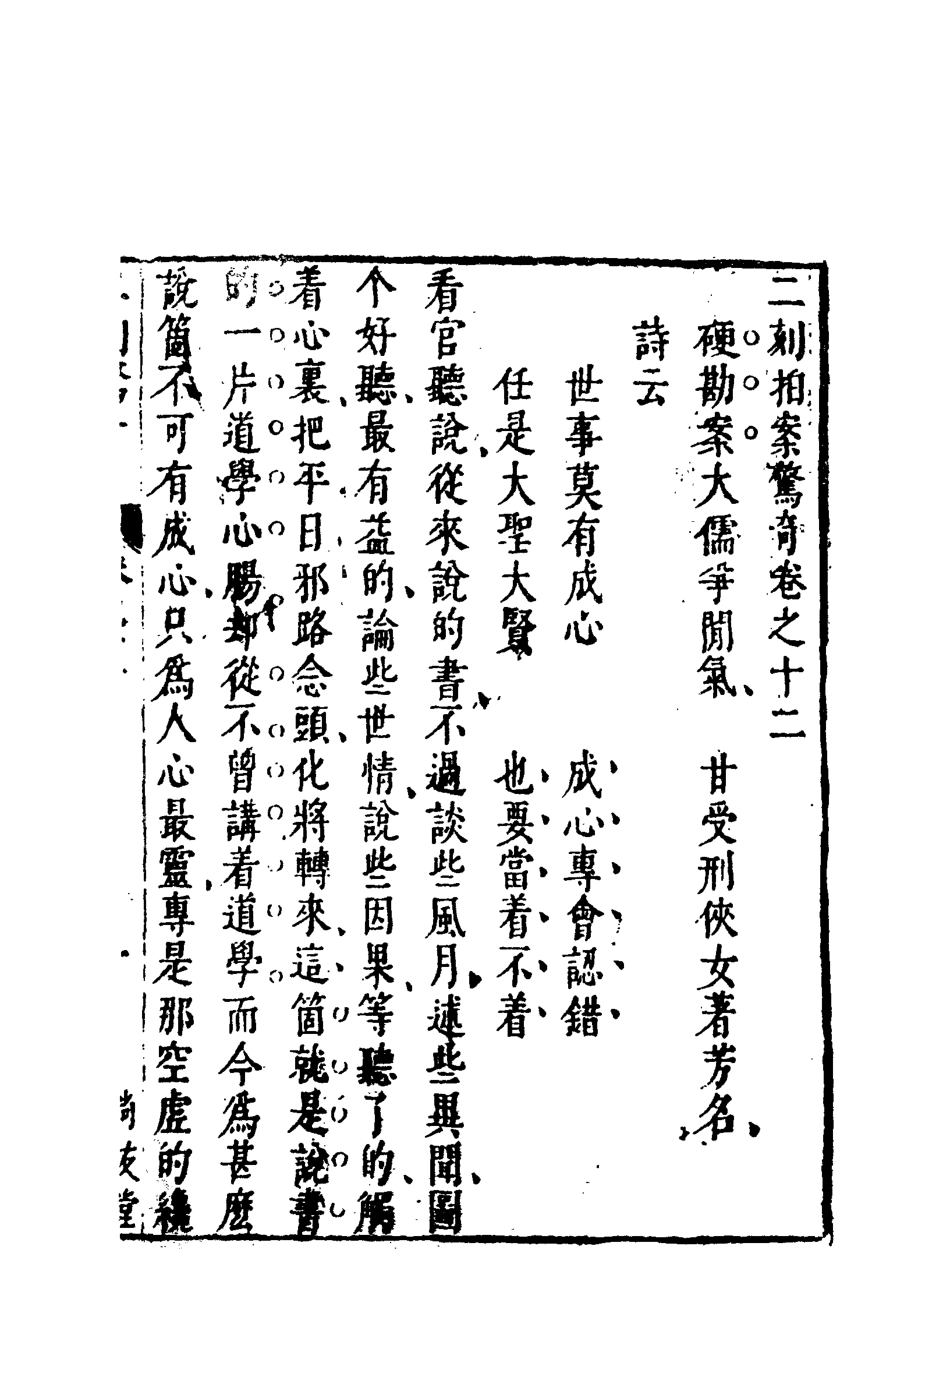 二刻拍案驚奇卷之十二
硬勘案大儒爭閒氣　甘受刑俠女著芳名
詩云
世事莫有成心　成心專會認錯
任是大聖大賢　也要當着不着
看官聽說從來說的書不過談些風月述些異聞圖
个好聽最有益的論些世情說些因果等聽了的觸
着心裏把平日邪路念頭化將轉來這箇就是說書
的一片道學心腸却從不曾講着道學而今爲甚麽
說箇不可有成心只爲人心最靈專是那空虛的纔
尚友堂